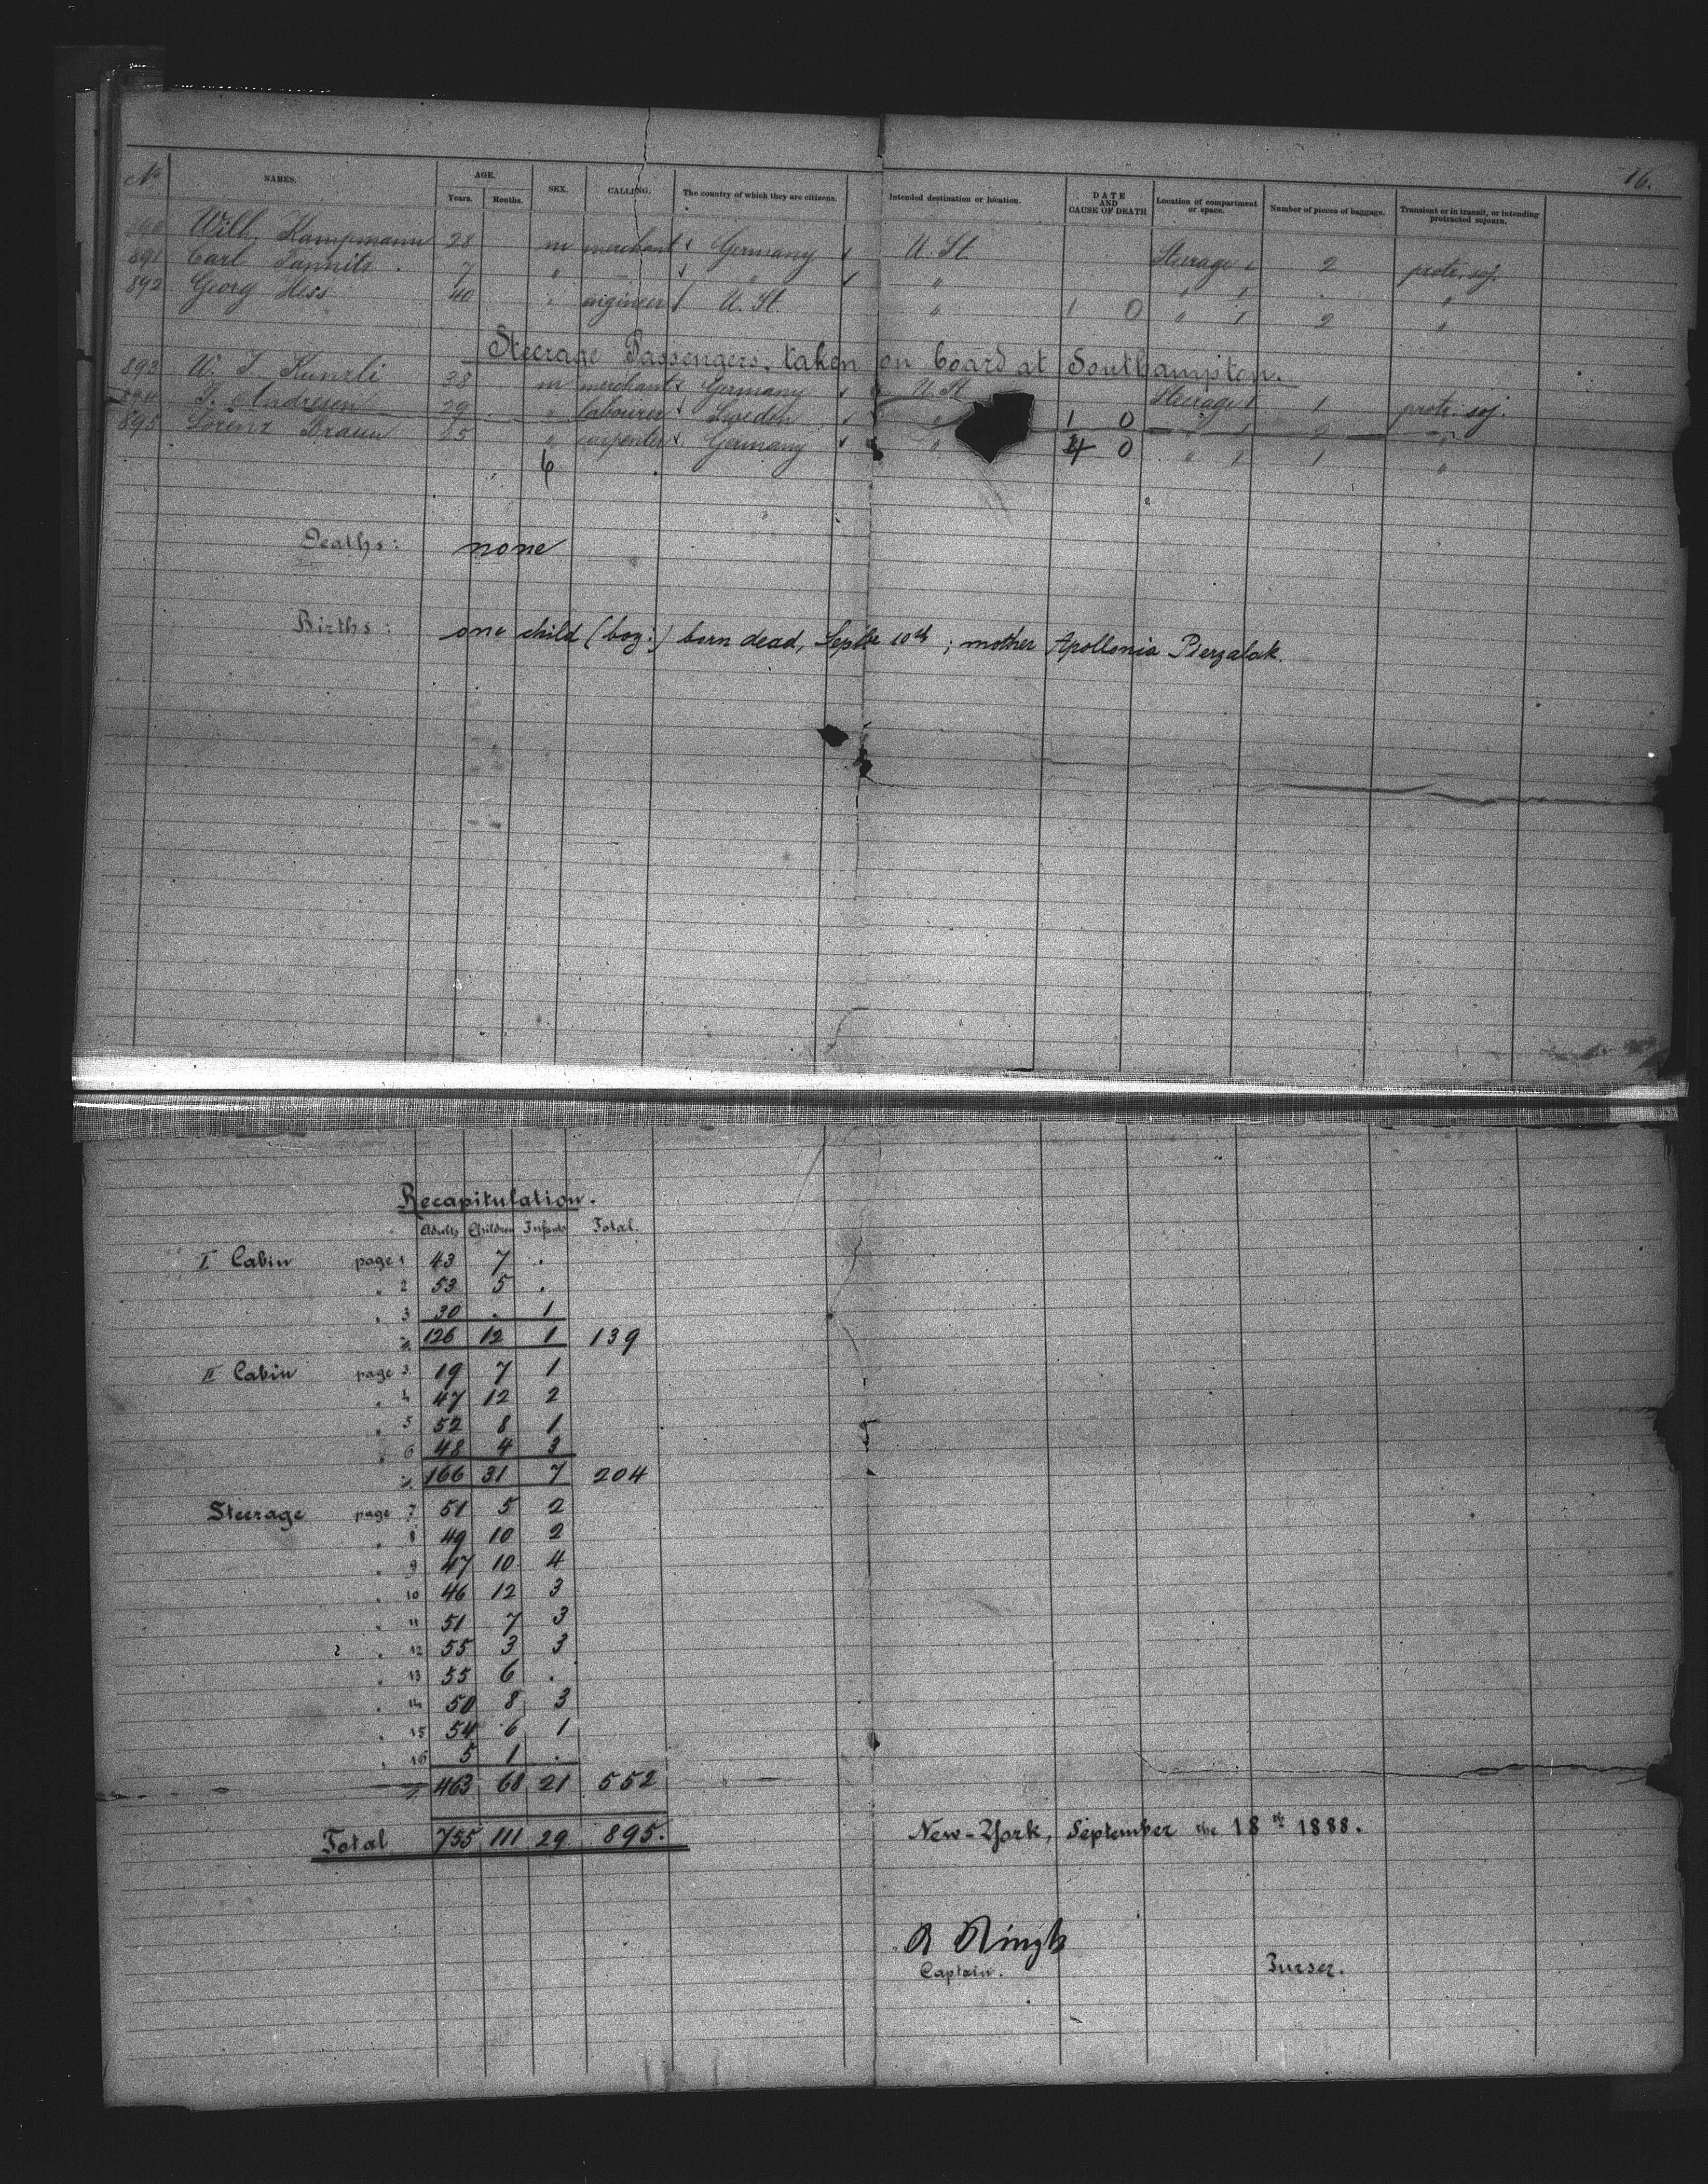 16.
No. NAMES. AGE. Years. Months. SEX. CALLING. The country of which they are citizens. Intended destination or location. DATE AND CAUSE OF DEATH Location of compartment or space. Number of pieces of baggage. Transient or in transit, or intending protracted sojourn.
890 Wilh. Kampmann 28 m merchant Germany U. St. Steerage 1 2 protr. soj.
891 Carl 7 " — " " " 1 . "
892 Georg Hess 40 " engineer U. St. " 1 0 " 1 2 "
Steerage Passengers, taken on board at Southampton.
893 W. J. Kunzli 38 m merchant Germany U. St. Steerage 1 1 protr. soj.
894 P. Andresen 29 " labourer Sweden " 1 0 " 1 2 "
895 Lorenz Braun 25 " carpenter Germany " 4 0 " 1 1 "
6
Deaths: none
Births: one child (boy.) born dead, Septbr 10th; mother Apollonia Pierzalak.
Recapitulation.
Adults Children Infants Total.
I Cabin page 1 43 7 .
" 2 53 5 .
" 3 30 . 1
126 12 1 139
II Cabin page 3 19 7 1
" 4 47 12 2
" 5 52 8 1
" 6 48 4 3
166 31 7 204
Steerage page 7 51 5 2
" 8 49 10 2
" 9 47 10 4
" 10 46 12 3
" 11 51 7 3
" 12 55 3 3
" 13 55 6 .
" 14 50 8 3
" 15 54 6 1
" 16 5 1 .
463 68 21 552
Total 755 111 29 895.
New-York, September the 18th 1888.
R Ringk
Captain. Purser.